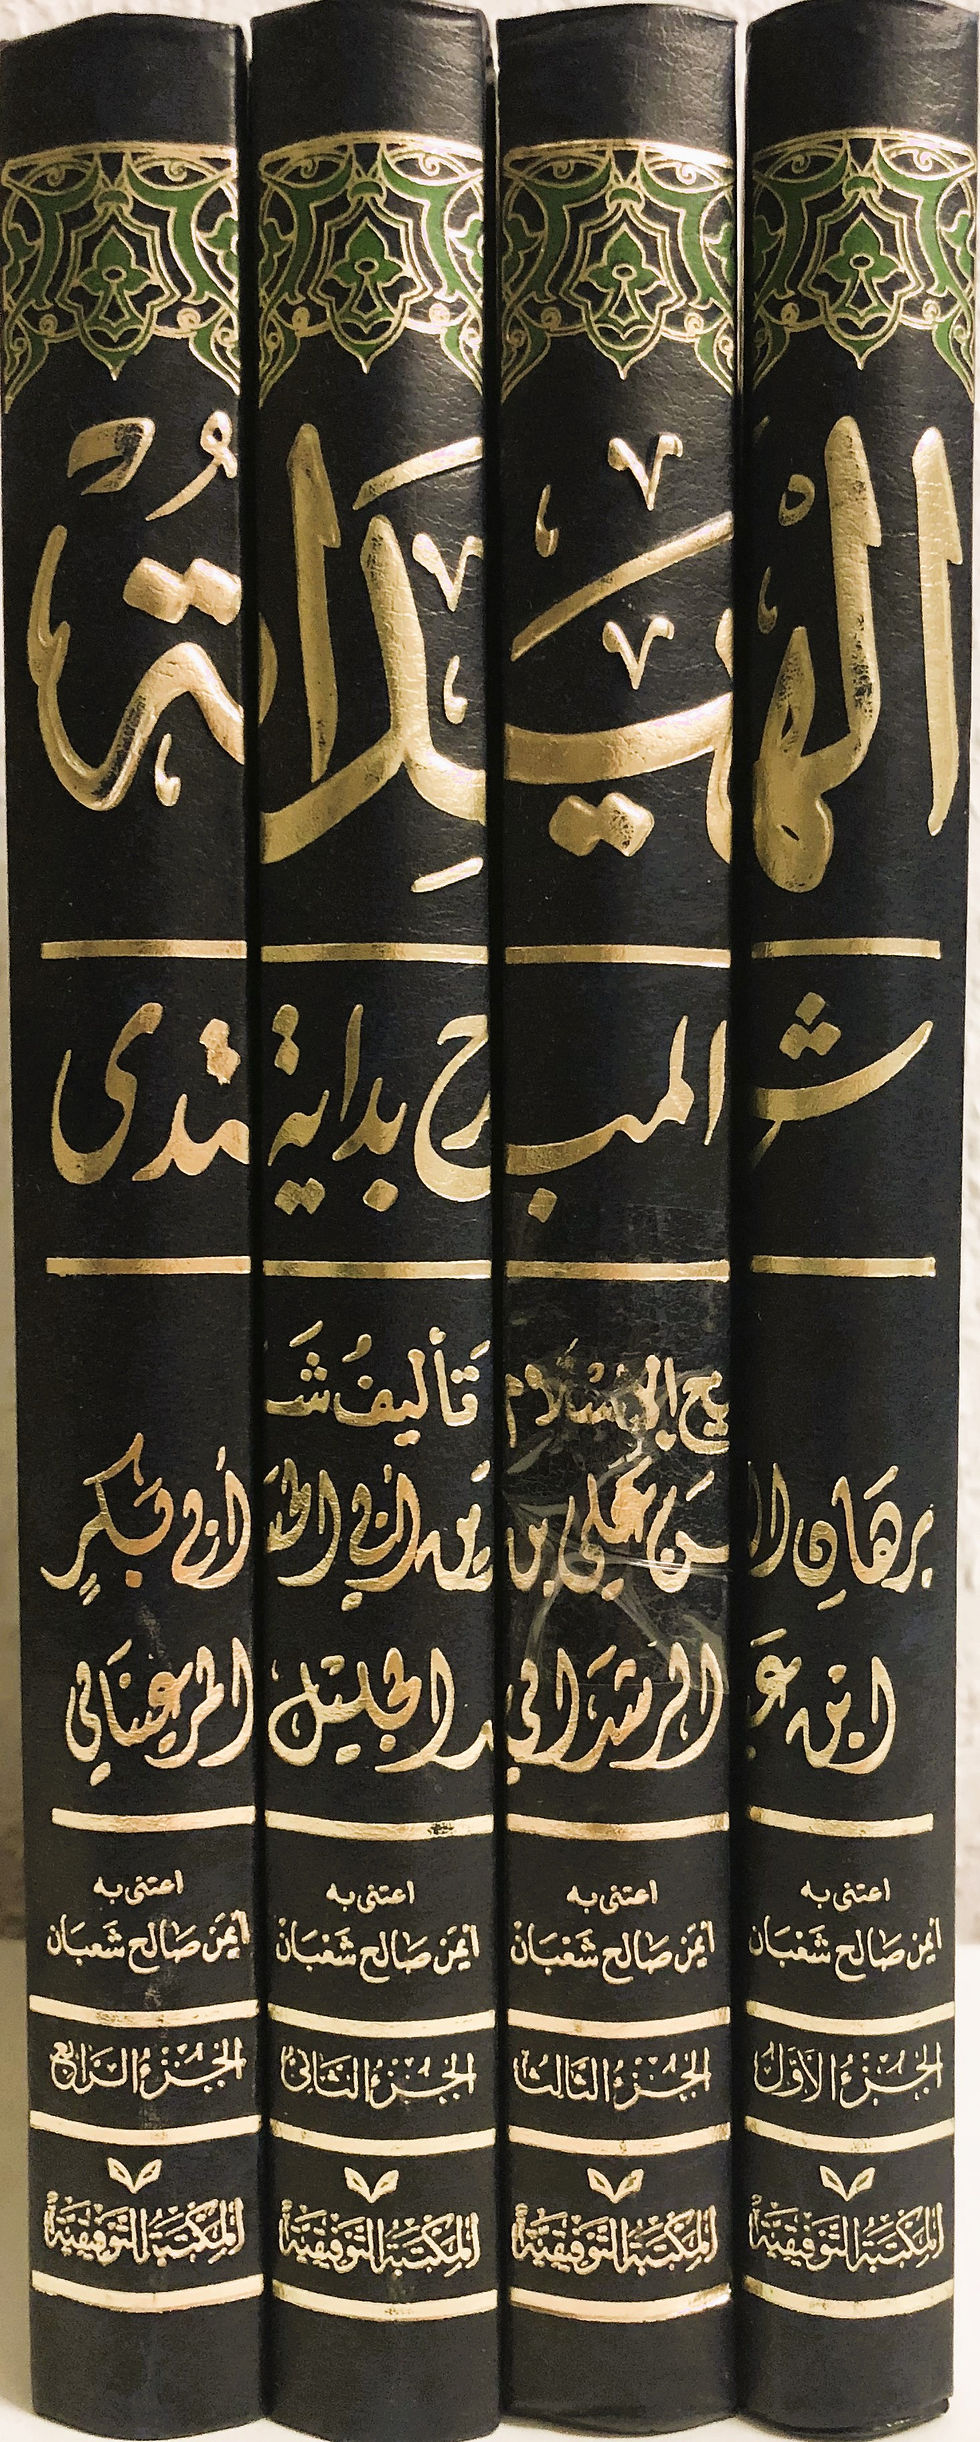 الهداية
شرح بداية المبتدى
تأليف شيخ الإسلام
برهان الدين أبي الحسن علي بن أبي بكر
ابن عبد الجليل الرشداني المرغيناني
اعتنى به
أيمن صالح شعبان
الجزء الأول
المكتبة التوفيقية
اعتنى به
أيمن صالح شعبان
الجزء الثالث
المكتبة التوفيقية
اعتنى به
أيمن صالح شعبان
الجزء الثاني
المكتبة التوفيقية
اعتنى به
أيمن صالح شعبان
الجزء الرابع
المكتبة التوفيقية